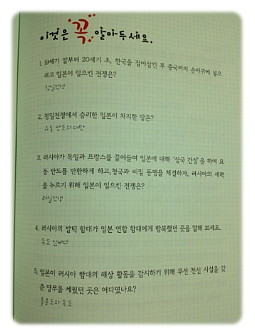 이것은 꼭 알아두세요.
1. 19세기 말부터 20세기 초, 한국을 집어삼킨 후 중국까지 손아귀에 넣으
려고 일본이 일으킨 전쟁은?
청일전쟁
2. 청일전쟁에서 승리한 일본이 차지한 땅은?
3. 러시아가 독일과 프랑스를 끌어들여 일본에 대해 '삼국 간섭'을 하여 요
동 반도를 반환하게 하고, 청국과 비밀 동맹을 체결하자, 러시아의 세력
을 누르기 위해 일본이 일으킨 전쟁은?
러일전쟁
4. 러시아의 발틱 함대가 일본 연합 함대에게 항복했던 곳을 말해 보세요.
5. 일본이 러시아 함대의 해상 활동을 감시하기 위해 무선 전신 시설을 갖
춘 망루를 세웠던 곳은 어디였나요?